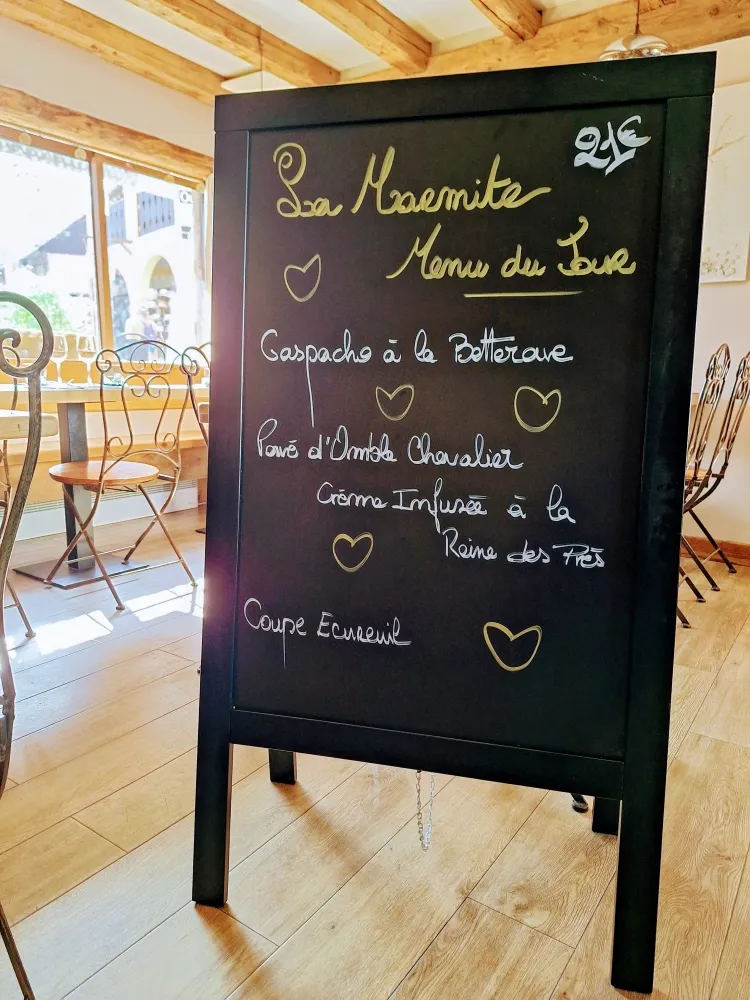 21€
La Marmite
Menu du Jour
Gaspacho à la Betterave
Pavé d'Omble Chevalier
Crème Infusée à la
Reine des Près
Coupe Ecureuil